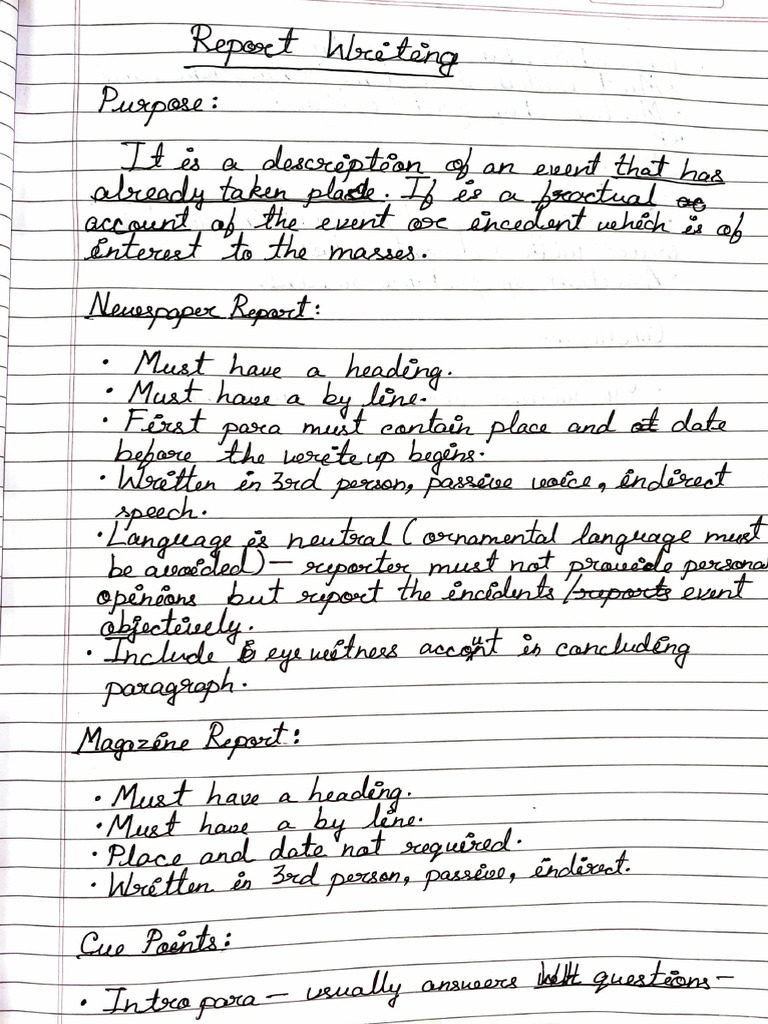 Report Writing
Purpose:
It is a description of an event that has
already taken place. If is a fractual
account of the event or incedent which is of
interest to the masses.
Newspaper Report:
• Must have a heading.
• Must have a by line.
• First para must contain place and date
before the writeup begins.
• Written in 3rd person, passive voice, indirect
speech.
• Language is neutral (ornamental language must
be avoided) — reporter must not provide personal
opinions but report the incidents / event
objectively.
• Include eye witness account in concluding
paragraph.
Magazine Report:
• Must have a heading.
• Must have a by line.
• Place and date not required.
• Written in 3rd person, passive, indirect.
Cue Points:
• Intro para — usually answers WH questions —